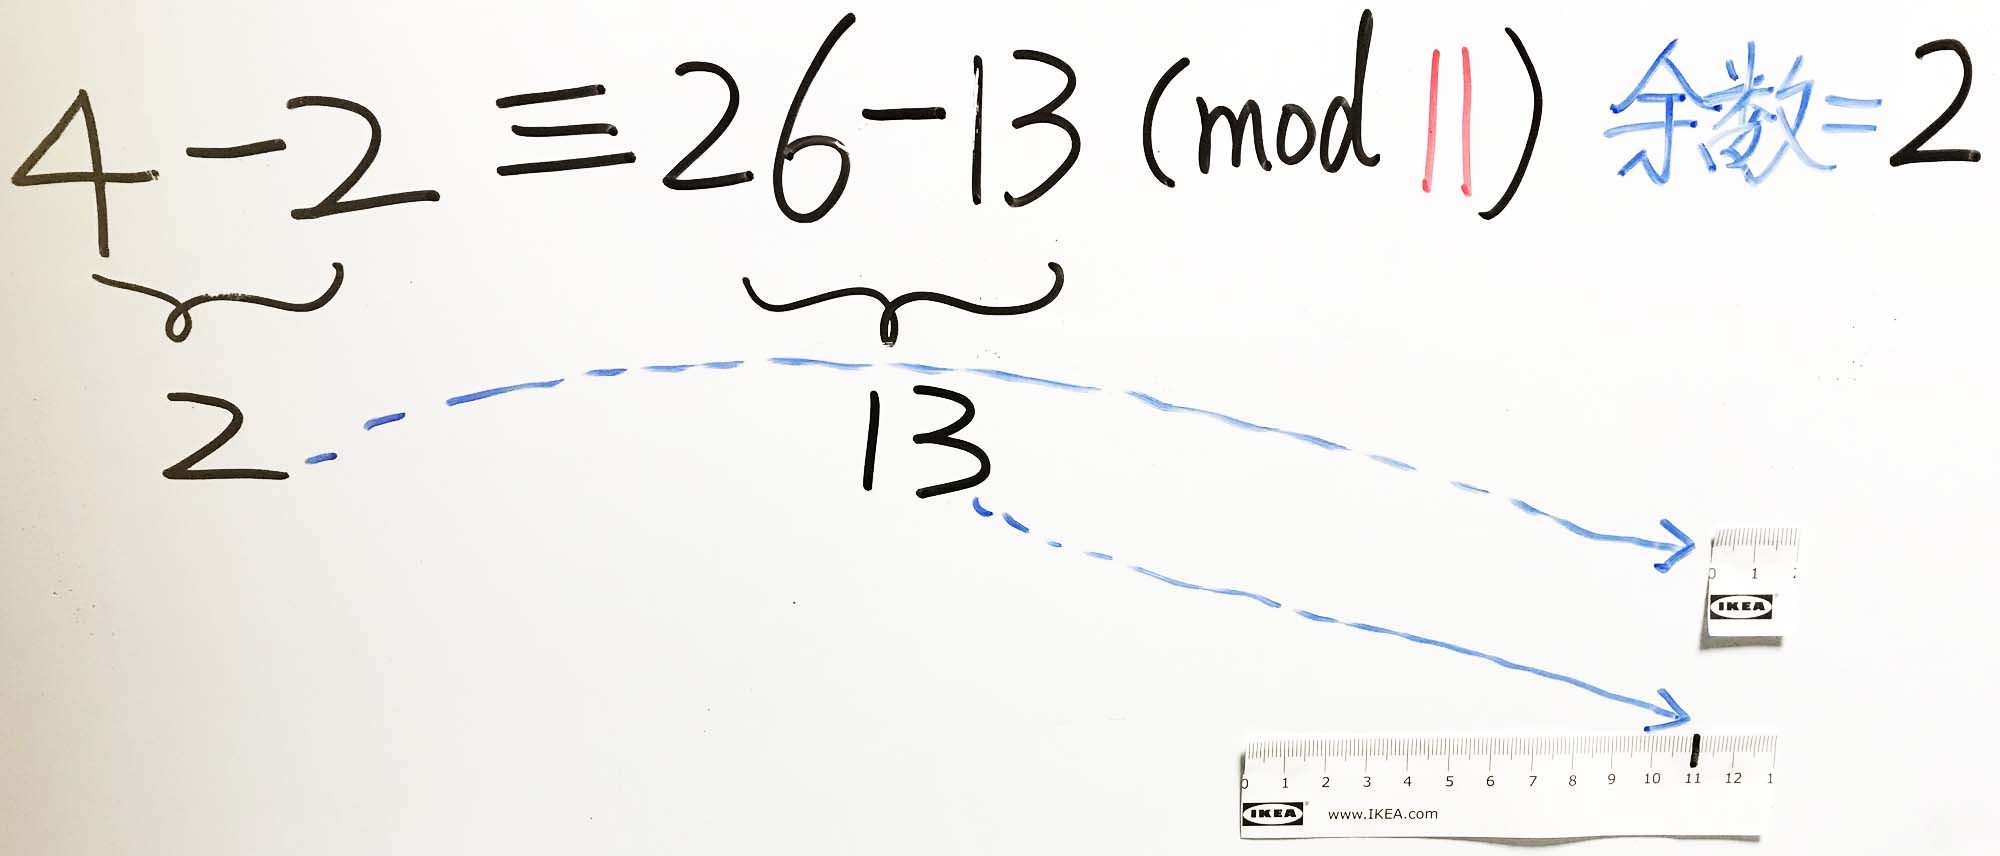 4-2≡26-13 (mod 11) 余数=2
2 13
0 1
IKEA
0 1 2 3 4 5 6 7 8 9 10 11 12 1
IKEA www.IKEA.com